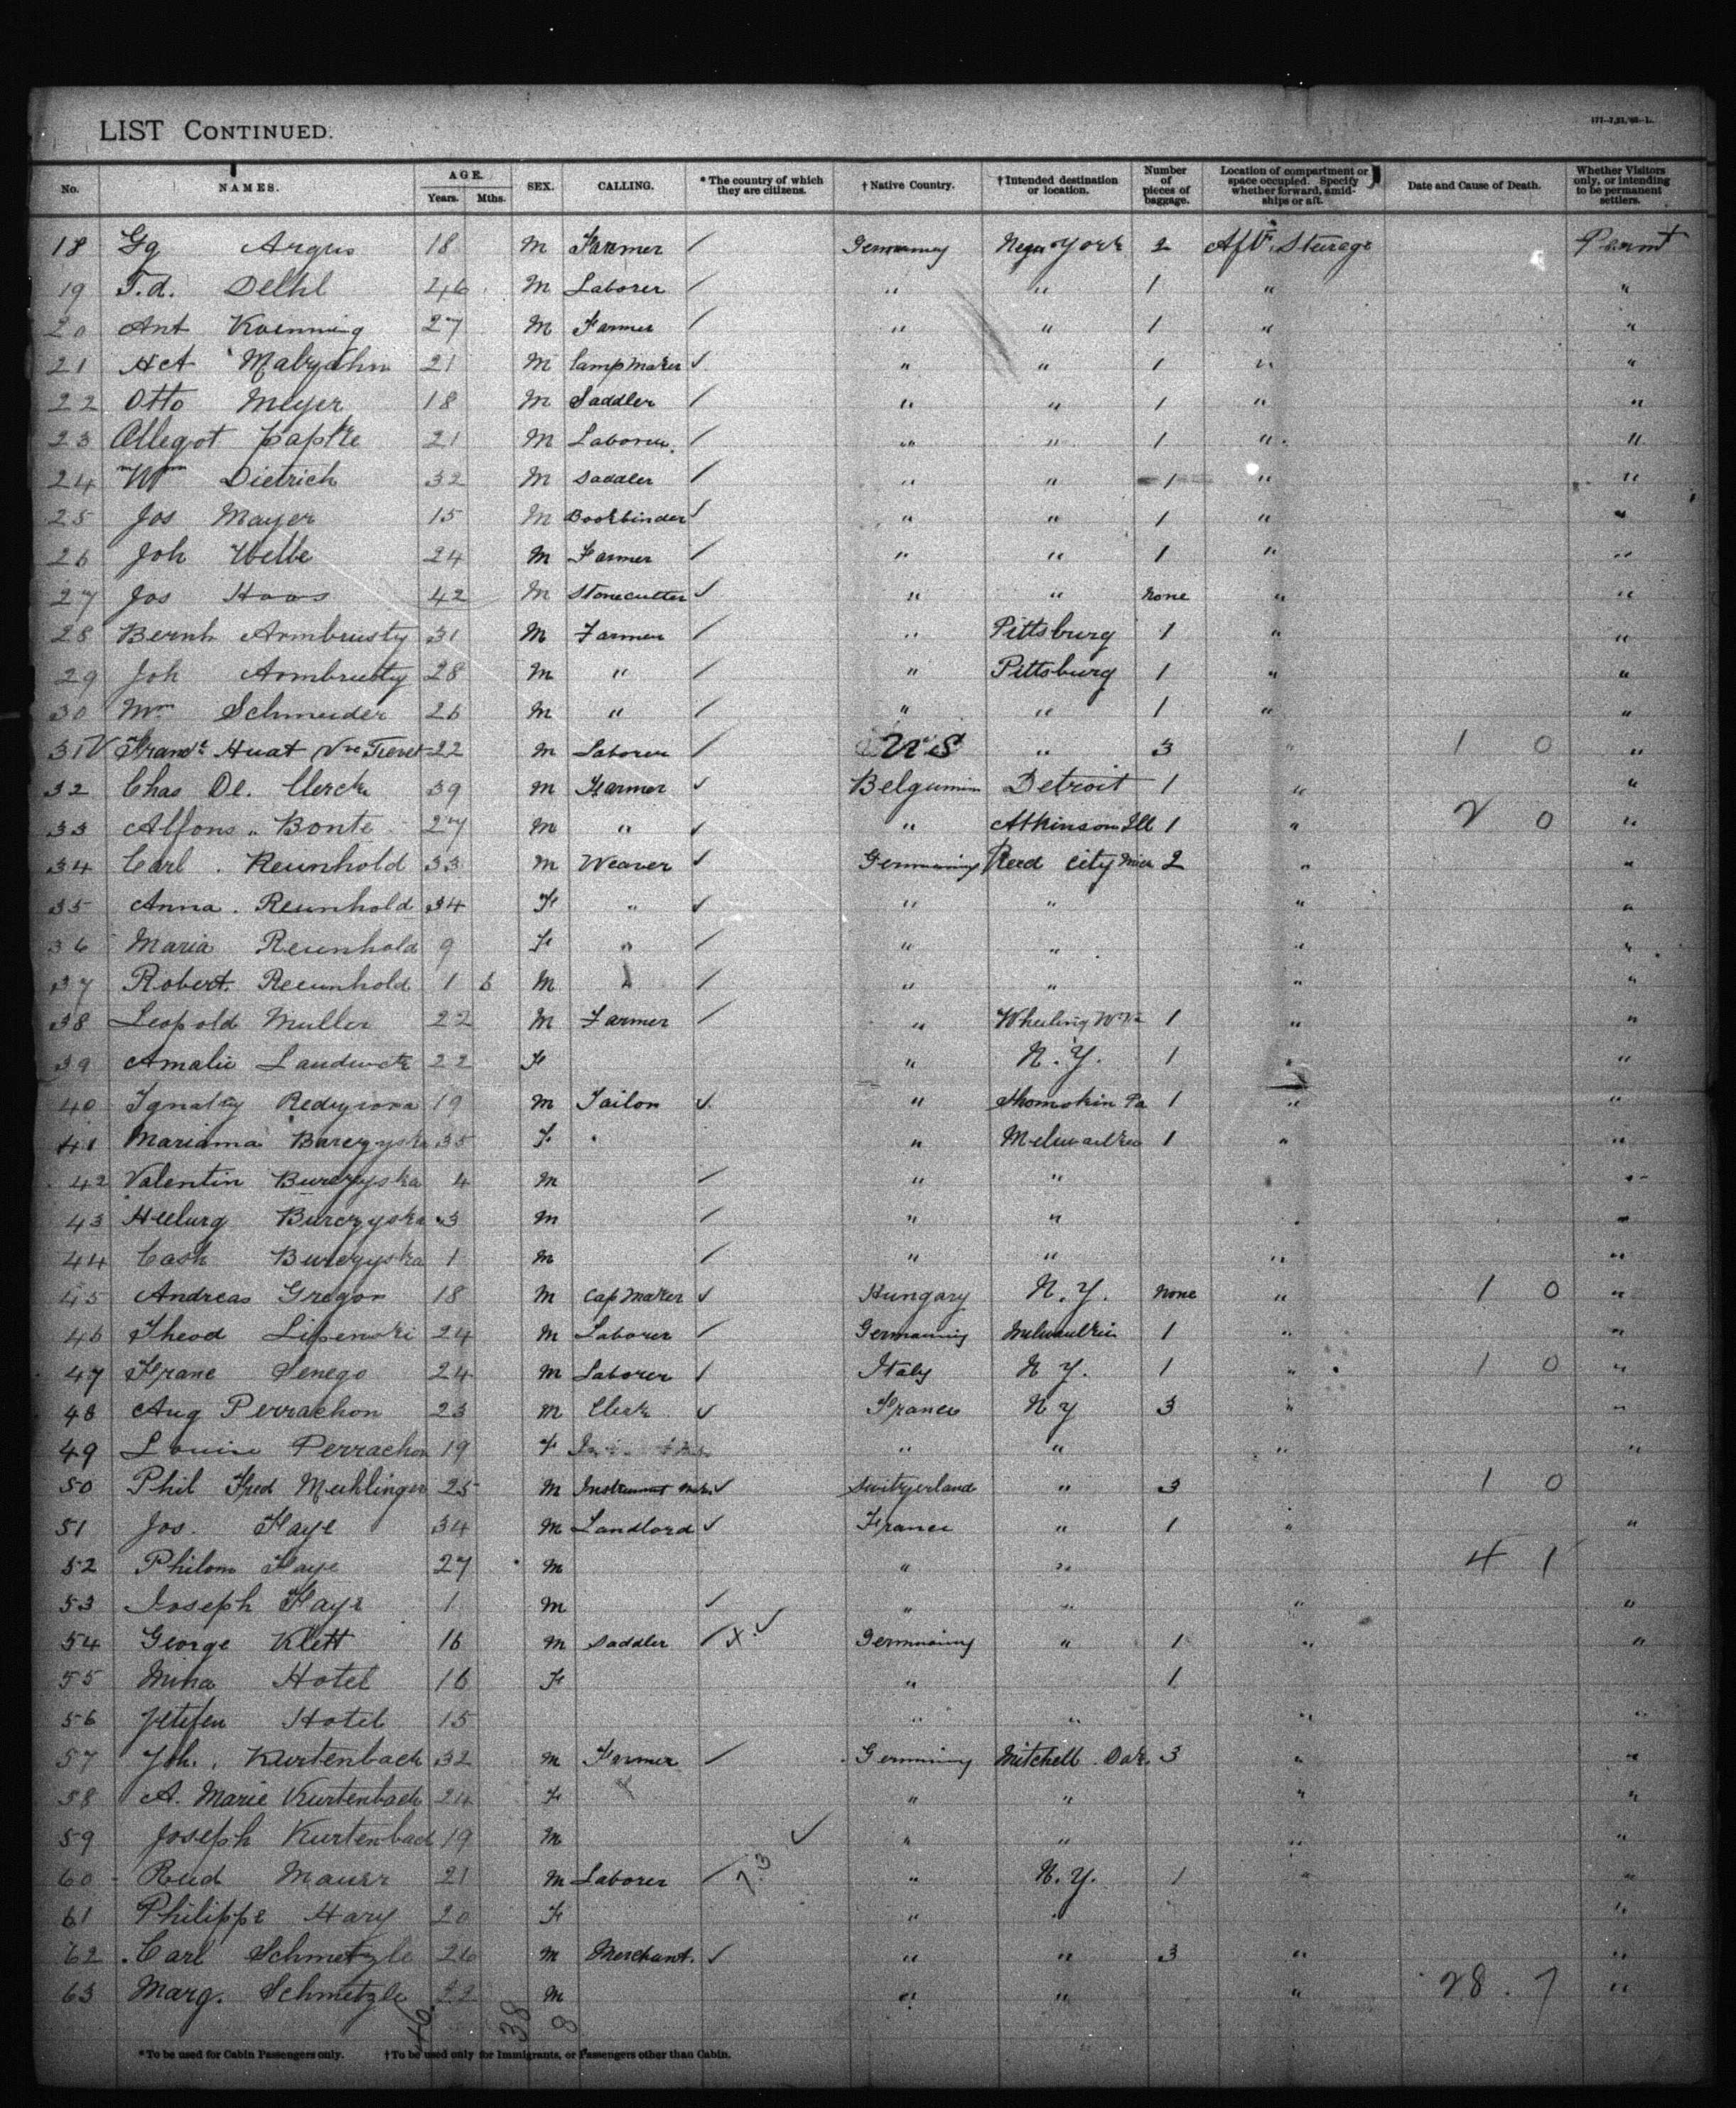 LIST CONTINUED.
No. NAMES. AGE. Years. Mths. SEX. CALLING. * The country of which they are citizens. † Native Country. † Intended destination or location. Number of pieces of baggage. Location of compartment or space occupied. Specify whether forward, amidships or aft. Date and Cause of Death. Whether Visitors only, or intending to be permanent settlers.
18 Gg Argus 18 M Farmer / Germany New York 2 Aft Sturage Permt
19 F.d. Delhl 46 M Laborer / " " 1 " "
20 Ant Koenning 27 M Farmer / " " 1 " "
21 Hct 21 M Lampmaker ✓ " " 1 " "
22 Otto Meyer 18 M Saddler / " " 1 " "
23 Papke 21 M Laborer / " " 1 " "
24 Wm Dietrich 32 M Saddler / " " 1 " "
25 Jos Mayer 15 M Bookbinder ✓ " " 1 " "
26 Joh Welle 24 M Farmer / " " 1 " "
27 Jos Haas 42 M Stonecutter ✓ " " none " "
28 Bernh Armbrusty 31 M Farmer / " Pittsburg 1 " "
29 Joh Armbrusty 28 M " / " Pittsburg 1 " "
30 Wm Schneider 26 M " / " " 1 " "
31 V Huat 22 M Laborer / U S " 3 " 1 0 "
32 Chas De. Clerck 39 M Farmer ✓ Belgumin Detroit 1 " "
33 Alfons Bonte 27 M " ✓ " Atkinson Ill 1 " 2 0 "
34 Carl Reunhold 33 M Weaver ✓ Germany Reed City Mich 2 " "
35 Anna Reunhold 34 F " ✓ " " " "
36 Maria Reunhold 9 F " / " " " "
37 Robert Reeunhold 1 6 M " / " " " "
38 Leopold Muller 22 M Farmer / " Wheeling W Va 1 " "
39 Amalie 22 F " N. Y. 1 " "
40 Ignatzy 19 M Tailor ✓ " Shomokin Pa 1 " "
41 Marianna Burczyska 35 F " Milwaukee 1 " "
42 Valentin Burczyska 4 M / " " "
43 Burczyska 3 M / " " "
44 Cash Burczyska 1 M / " " " "
45 Andreas Gregor 18 M Cap Maker ✓ Hungary N. Y. None " 1 0 "
46 Theod Lipenski 24 M Laborer / Germany Milwaukee 1 " "
47 Franc Senego 24 M Laborer / Italy N Y. 1 " 1 0 "
48 Aug Perrachon 23 M Clerk ✓ France N Y 3 " "
49 Louise Perrachon 19 F " " " "
50 Phil Fred Muhlinger 25 M Instrument Mkr ✓ Switzerland " 3 1 0
51 Jos. Faye 34 M Landlord ✓ France " 1 " "
52 Philom Faye 27 M " " 4 1
53 Joseph Faye 1 M / " " " "
54 George Klett 16 M Saddler / x ✓ Germany " 1 " "
55 Mina Hotel 16 F " 1
56 Hotel 15 " " " "
57 Joh. Kurtenbach 32 M Farmer / Germany Mitchell Dak. 3 " "
58 A. Marie Kurtenbach 24 F " " " "
59 Joseph Kurtenbach 19 M ✓ " " " "
60 Rud Maurr 21 M Laborer / 73 " N. Y. 1 " "
61 Philippe Hary 20 F " "
62 Carl Schmetzle 26 M Merchant. ✓ " " 3 " "
63 Marg. Schmetzle 22 M " " " 28. 7 "
46. 38 8
*To be used for Cabin Passengers only. †To be used only for Immigrants, or Passengers other than Cabin.